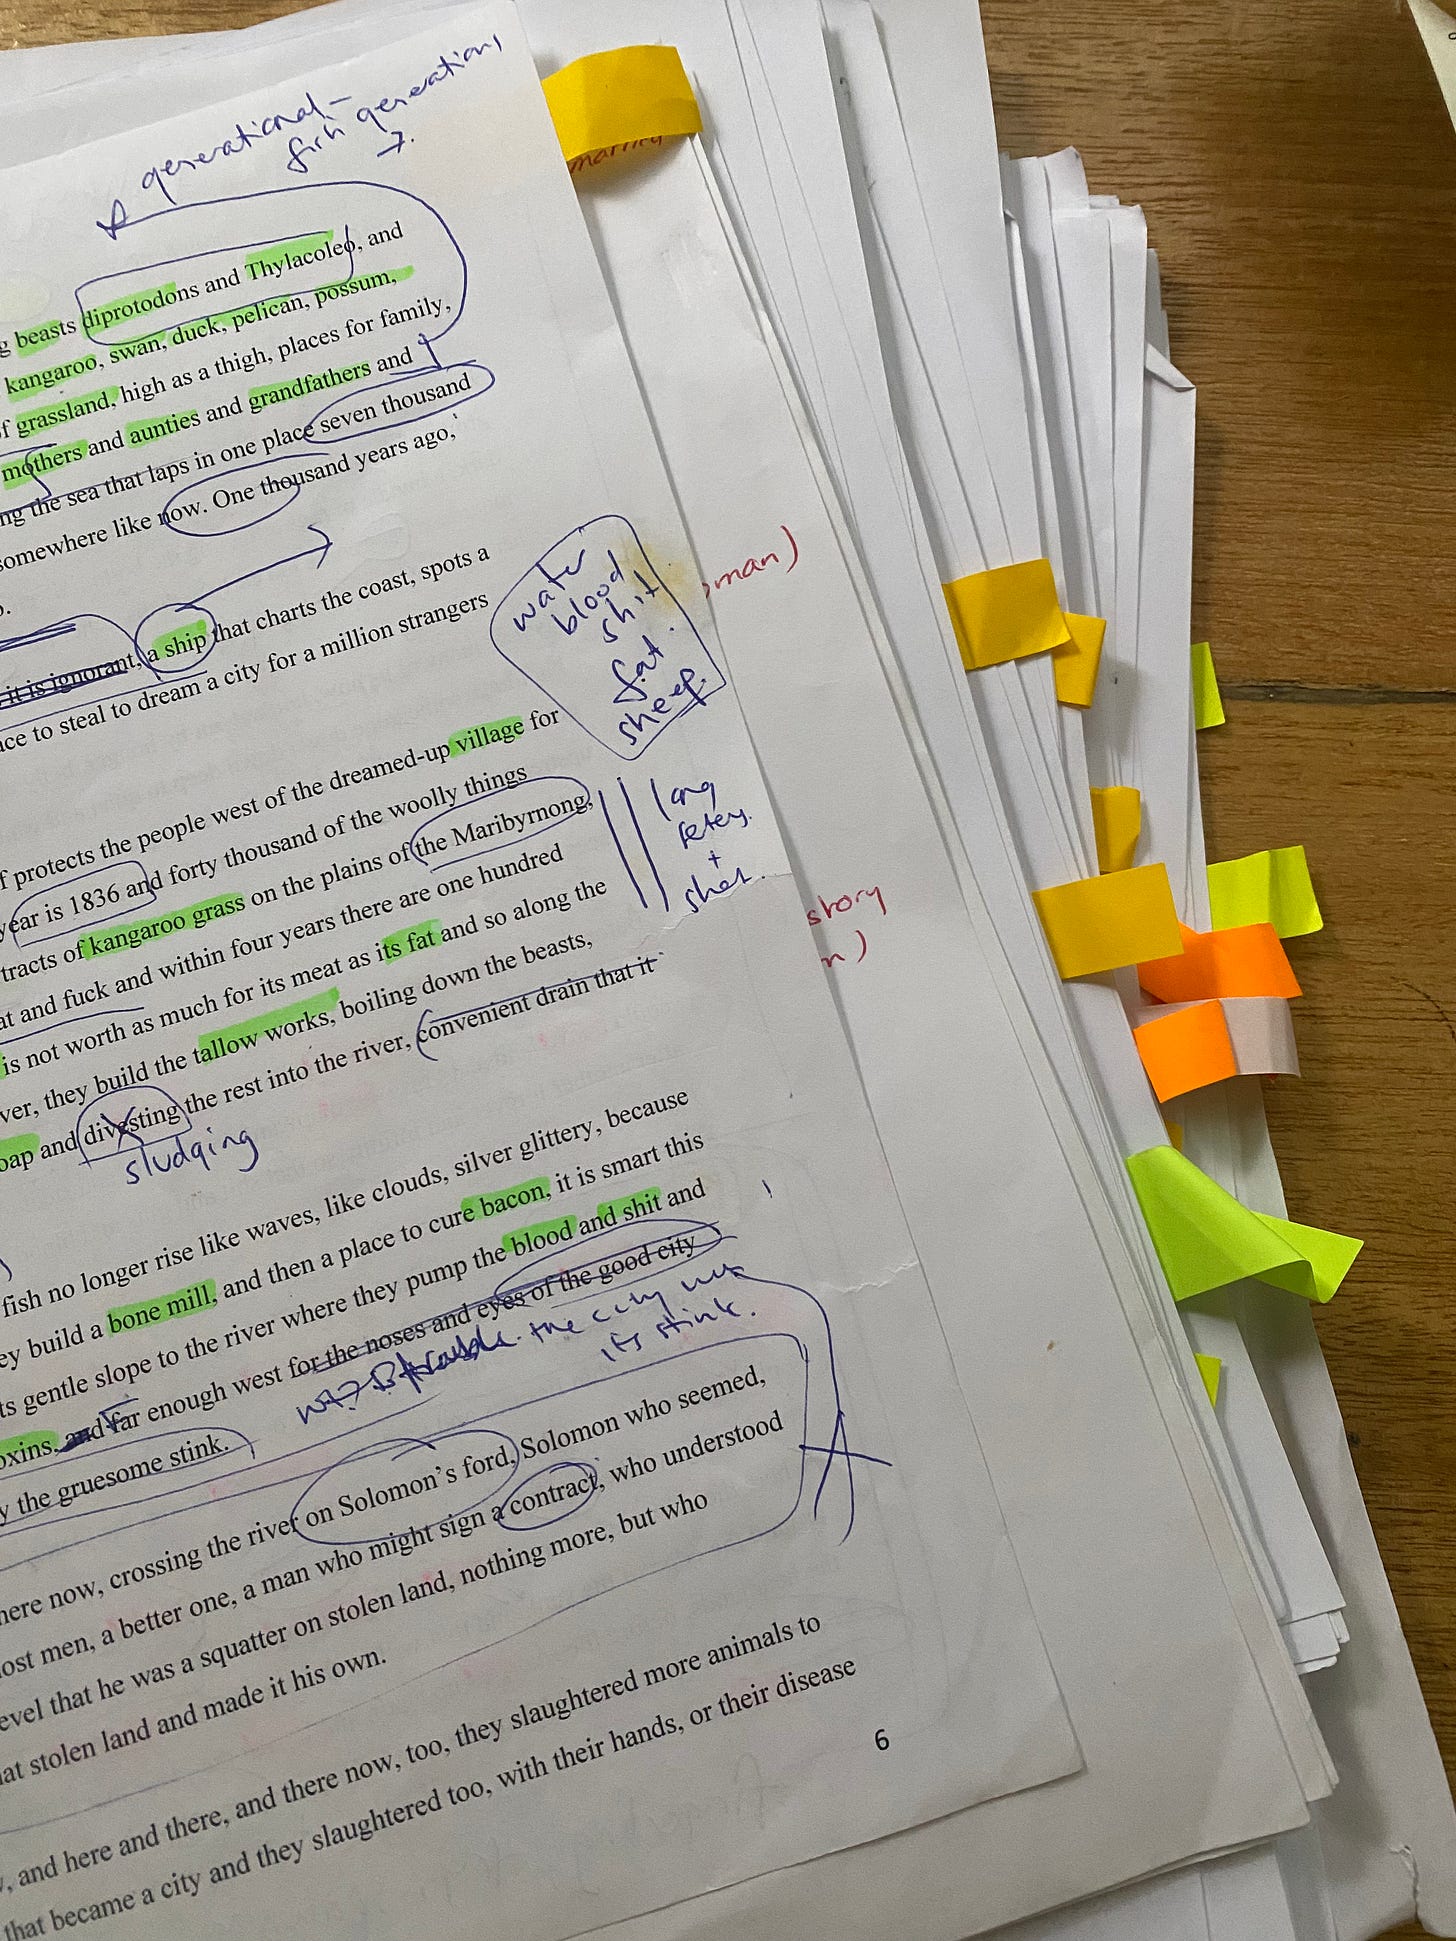 generational –
fish generations
7.
married
beasts diprotodons and Thylacoleo, and
kangaroo, swan, duck, pelican, possum,
grassland, high as a thigh, places for family,
mothers and aunties and grandfathers and
the sea that laps in one place seven thousand
somewhere like now. One thousand years ago,
it is ignorant, a ship that charts the coast, spots a
to steal to dream a city for a million strangers
water
blood
shit
fat.
sheep.
protects the people west of the dreamed-up village for
year is 1836 and forty thousand of the woolly things
tracts of kangaroo grass on the plains of the Maribyrnong,
and fuck and within four years there are one hundred
is not worth as much for its meat as its fat and so along the
they build the tallow works, boiling down the beasts,
and divesting the rest into the river, convenient drain that it
sludging
long
+
story
fish no longer rise like waves, like clouds, silver glittery, because
build a bone mill, and then a place to cure bacon, it is smart this
gentle slope to the river where they pump the blood and shit and
and far enough west for the noses and eyes of the good city
the city
its stink.
the gruesome stink.
now, crossing the river on Solomon's ford, Solomon who seemed,
men, a better one, a man who might sign a contract, who understood
that he was a squatter on stolen land, nothing more, but who
stolen land and made it his own.
and here and there, and there now, too, they slaughtered more animals to
that became a city and they slaughtered too, with their hands, or their disease
6